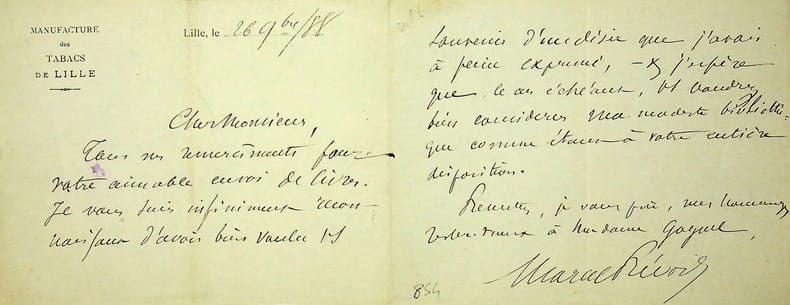 MANUFACTURE
des
TABACS
DE LILLE
Lille, le 26 9bre/88
Cher Monsieur,
Tous mes remerciments pour
votre aimable envoi de livres.
Je vous suis infiniment recon-
naissant d'avoir bien voulu vs
souvenir d'un désir que j'avais
à peine exprimé, – & j'espère
que le cas échéant, vs voudrez
bien considérer ma modeste bibliothè-
que comme étant à votre entière
disposition.
Remettez, je vous prie, mes hommages
respectueux à Madame
Marcel Prévost
854